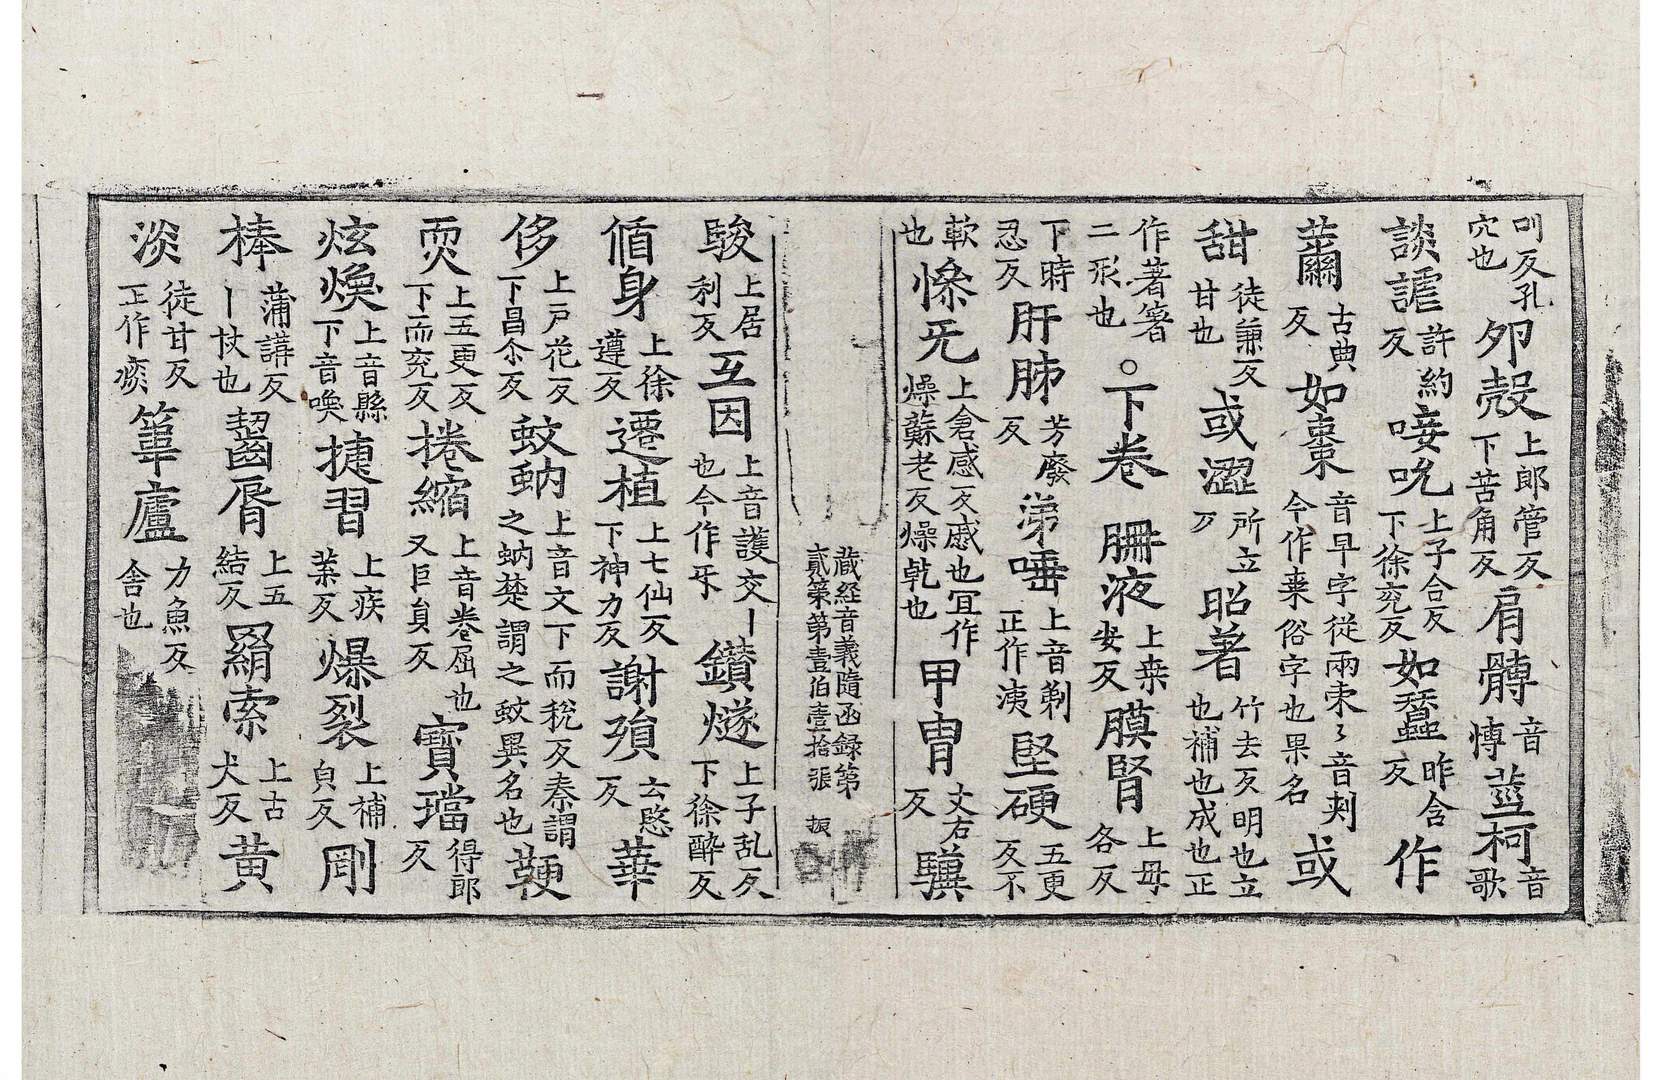 叫反孔穴也夘殻上郎管反下苦角反肩髆音博䓑柯音歌
談謔許約反唼吮上子合反下徐兖反如蠶昨含反作
䕠古典反如棗音早字從兩朿朿音刾今作枣俗字也果名或
甜徒兼反甘也或澀所立反昭著竹去反明也立也補也成也正
作著箸二形也。下卷𦙱液上桒安反膜腎上毋各反
下時忍反肝肺芳廢反涕唾上音剃正作洟堅硬五更反不
軟也憏旡上倉感反慼也冝作燥蘇老反燥乹也甲胄丈右反驥
藏經音義隨函録第貳第第壹伯壹拾張 振
駿上居利反互因上音護交丨也今作𠃨鑚燧上子乱反下徐醉反
循身上徐遵反遷植上七仙反下神力反謝殞云愍反華
侈上户花反下昌尒反蚊蚋上音文下而稅反秦謂之蚋楚謂之蚊異名也鞕
耎上五更反下而兖反捲縮上音卷屈也又巨負反寳璫得郎反
炫煥上音縣下音喚捷習上疾葉反爆裂上補皃反剛
棒蒲講反丨杖也齧脣上五結反羂索上古犬反黄
淡徒甘反正作痰篳廬力魚反舍也